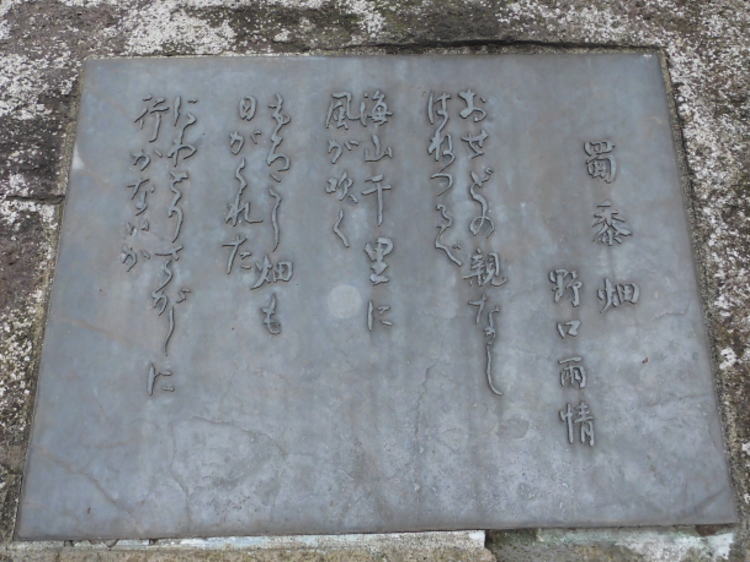 蜀黍畑
野口雨情
おせどの親なし
はねつるべ
海山千里に
風が吹く
もろこし畑も
日がくれた
にわとりさがしに
行かないか